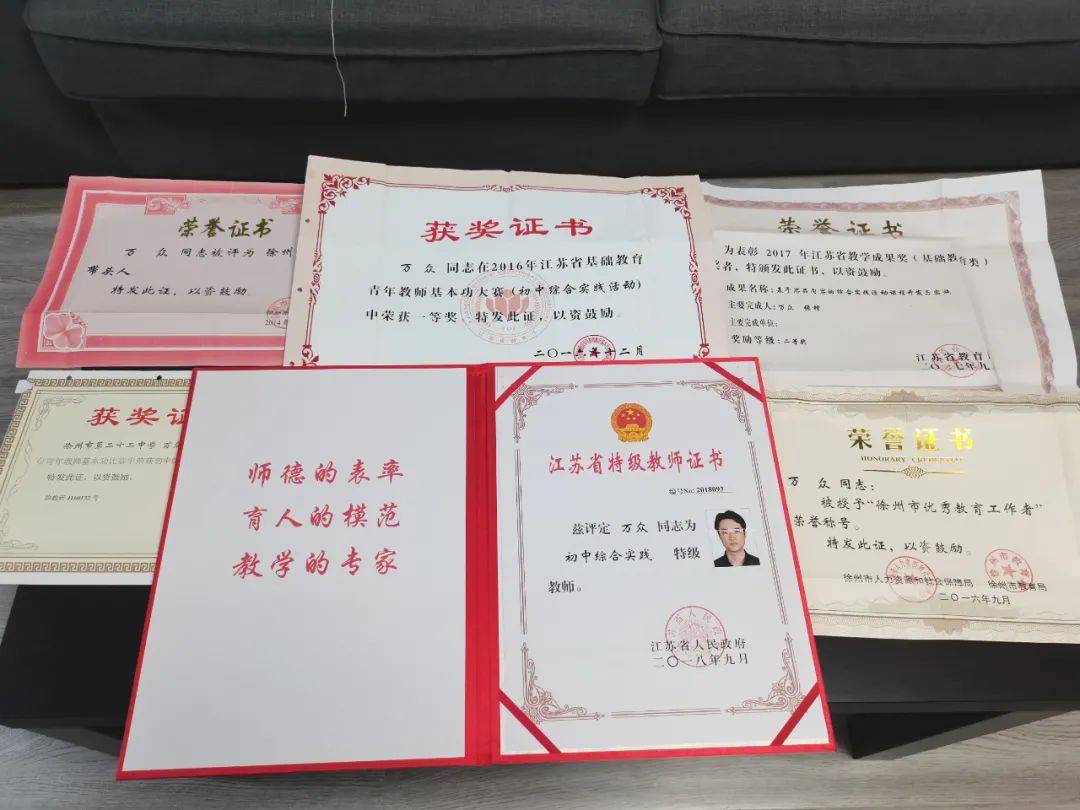 荣誉证书
万 众 同志被评为 徐州
带头人
特发此证，以资鼓励。
获奖证书
万 众 同志在2016年江苏省基础教育
青年教师基本功大赛（初中综合实践活动）
中荣获一等奖。特发此证，以资鼓励。
二〇一六年十二月
荣誉证书
为表彰 2017 年江苏省教学成果奖（基础教育类）
者，特颁发此证书，以资鼓励。
主要完成人：万众
主要完成单位：
奖励等级：二等奖
江苏省教育
二〇一七年九
获奖证
徐州市第二十二中学 万
特发此证，以资鼓励。
师德的表率
育人的模范
教学的专家
江苏省特级教师证书
编号No: 2018093
兹评定 万众 同志为
初中综合实践 特级
教师。
江苏省人民政府
二〇一八年九月
荣誉证书
HONORARY CREDENTIAL
万 众 同志：
被授予“徐州市优秀教育工作者”
荣誉称号。
特发此证，以资鼓励。
徐州市人力资源和社会保障局 徐州市教育局
二〇一六年九月